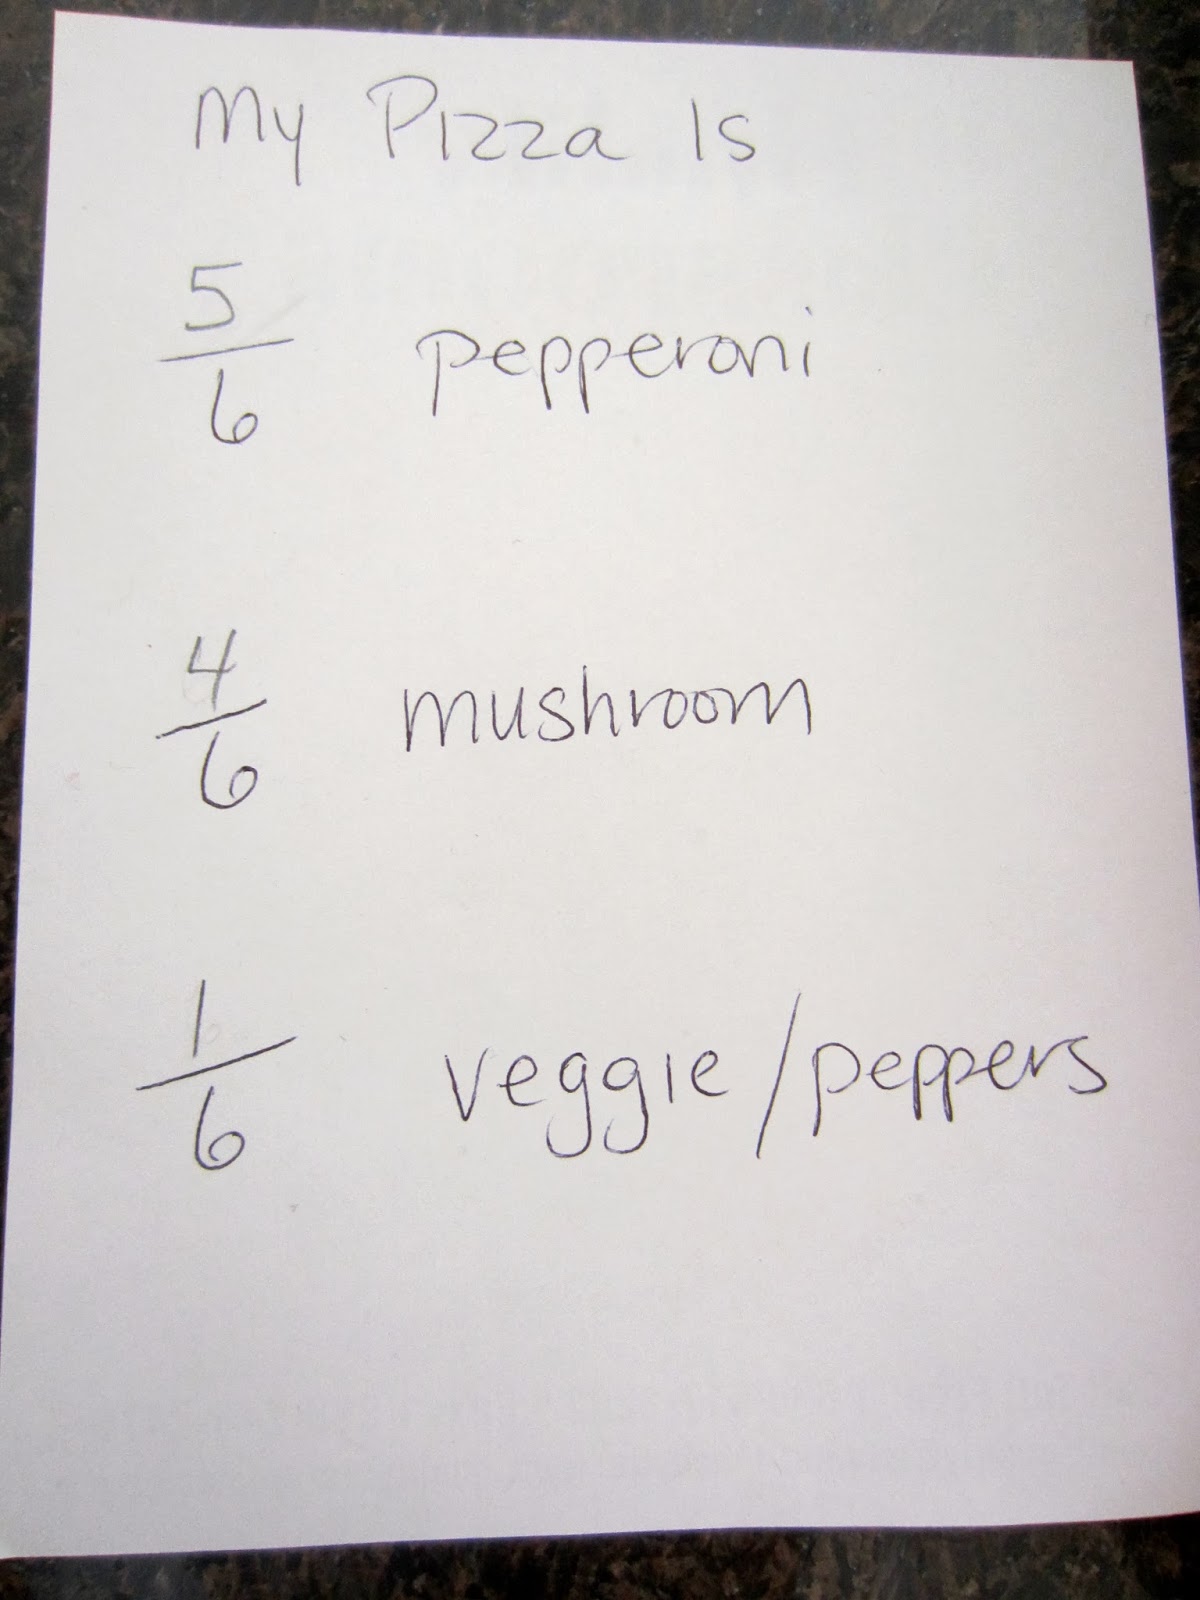 My Pizza Is
5/6 pepperoni
4/6 mushroom
1/6 veggie/peppers